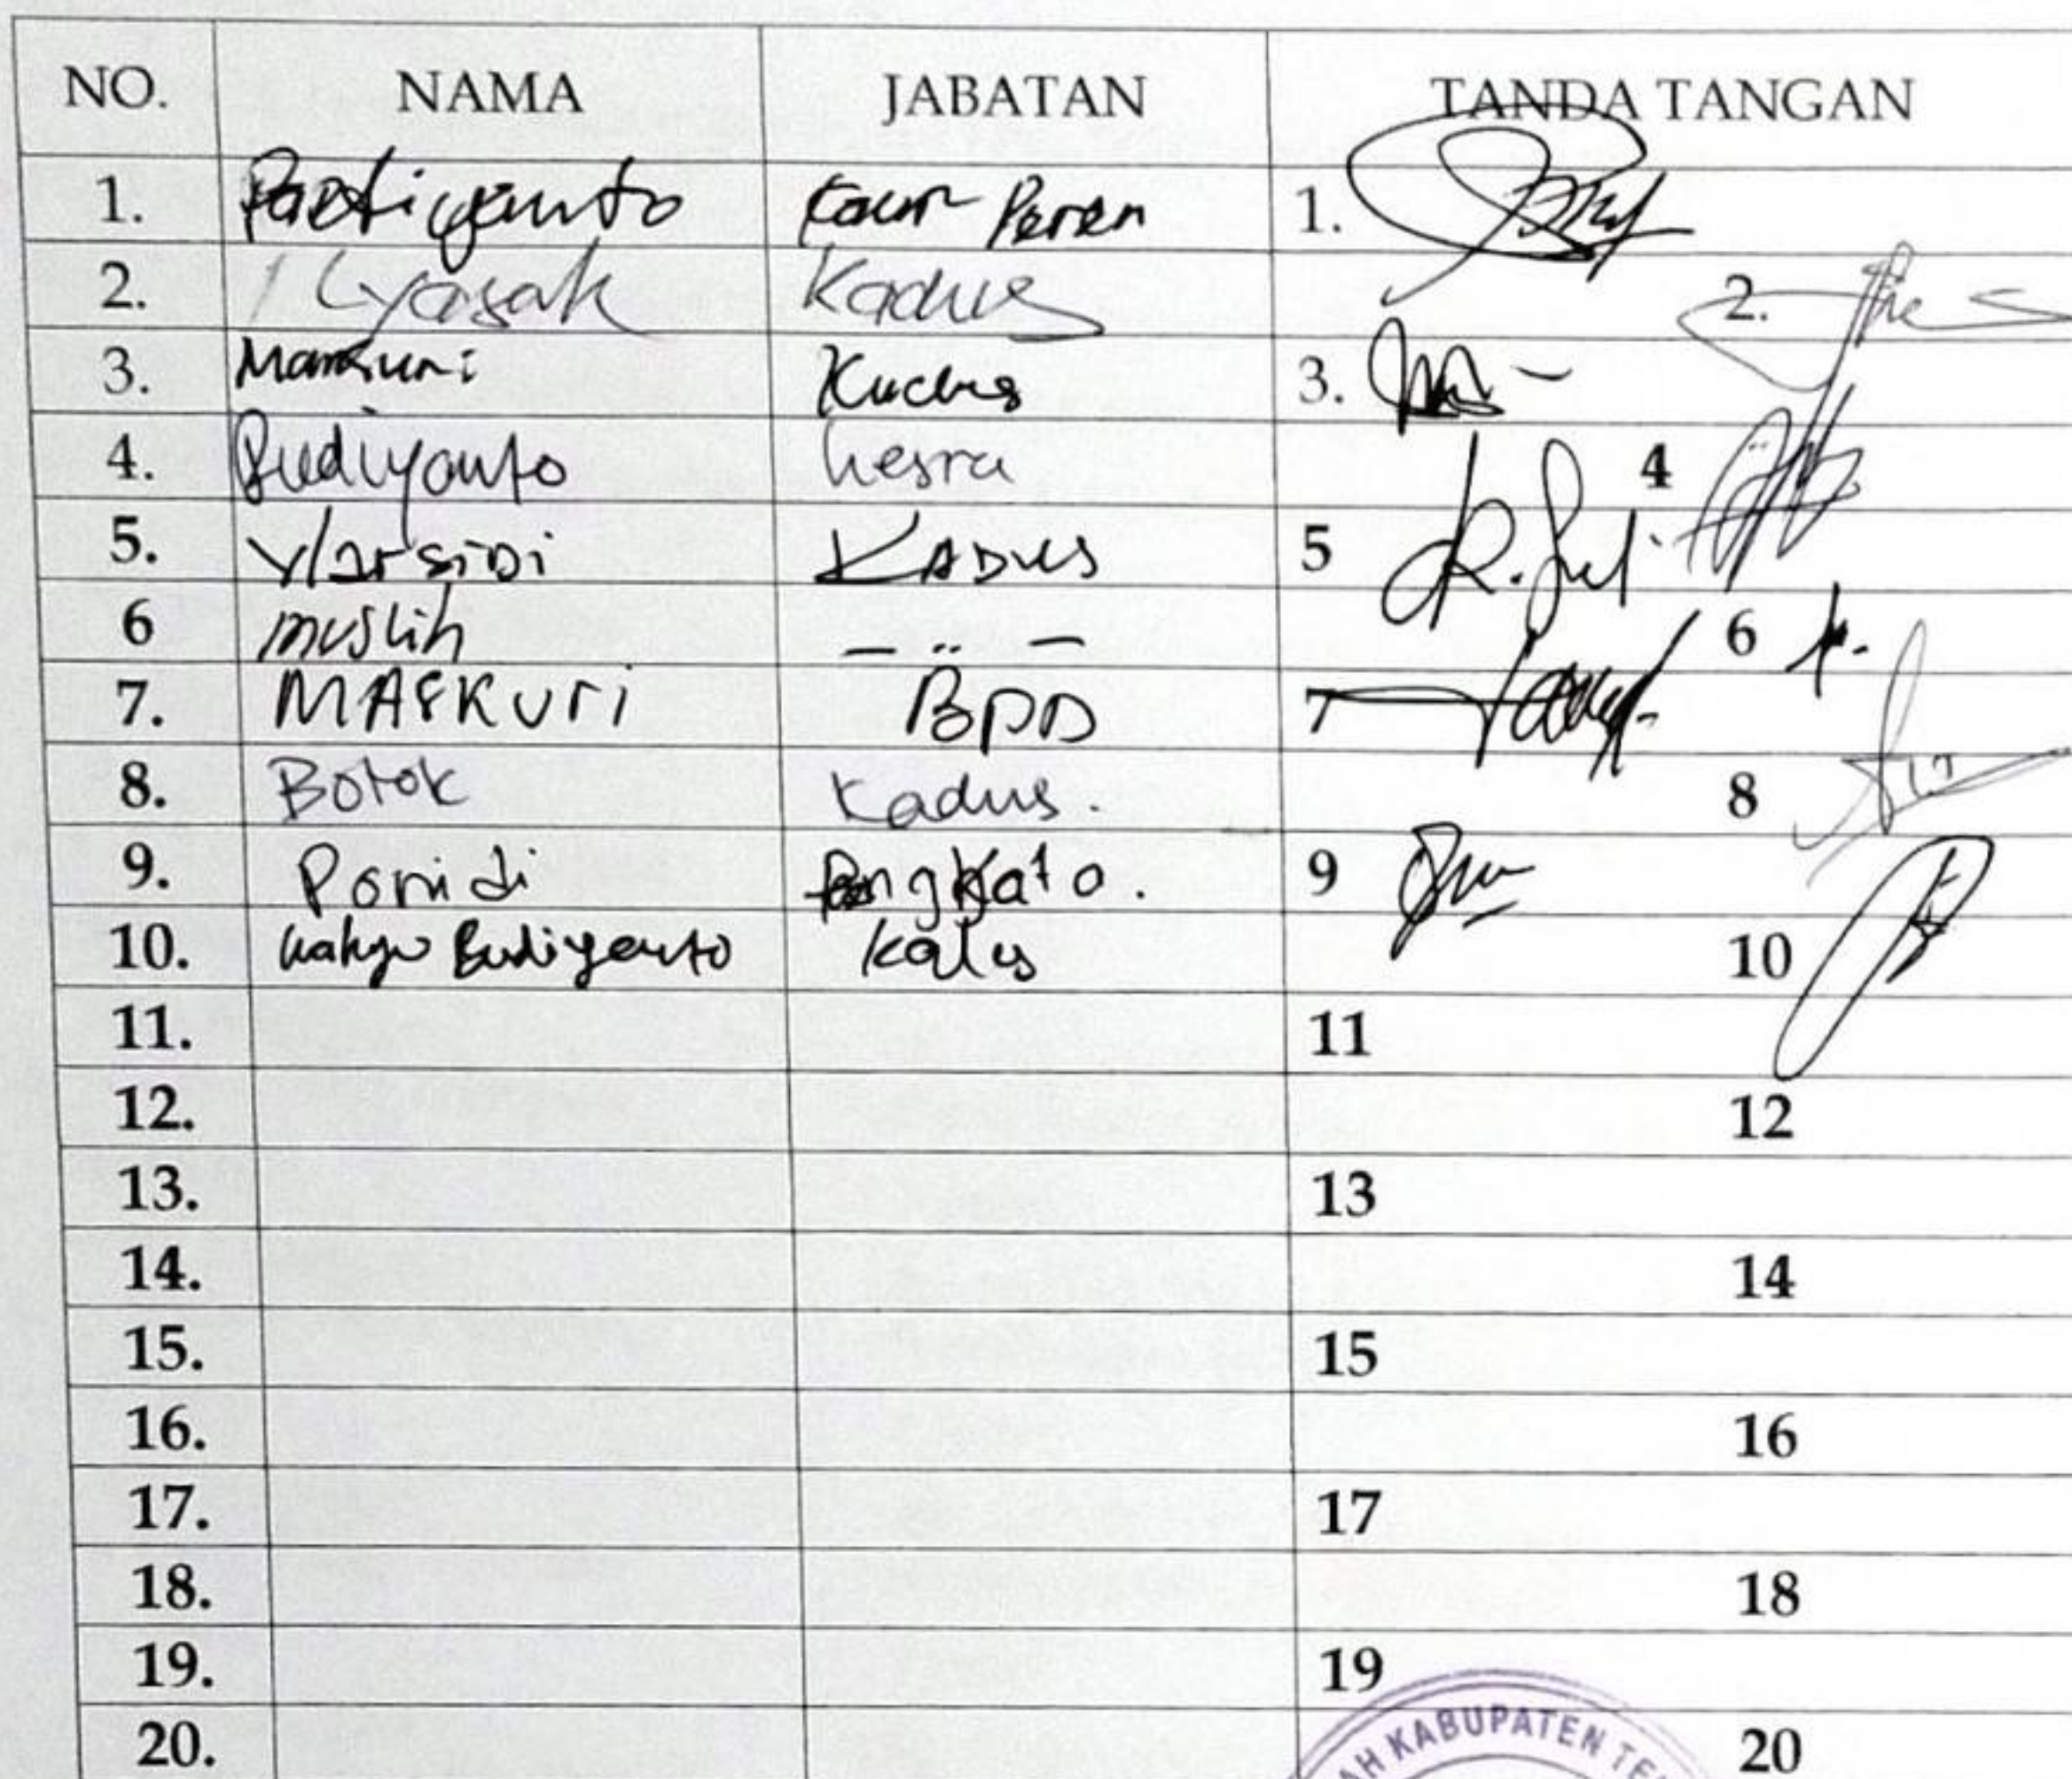 NO. NAMA JABATAN TANDA TANGAN
1. Partiyanto Kaur Peren 1.
2. Ilyasak Kadus 2.
3. Kadus 3.
4. Budiyanto kesra 4
5. Warsidi KADUS 5
6 muslih — .. — 6
7. MASKURi BPD 7
8. Botok Kadus. 8
9. Ponidi 9
10. Wahyu Budiyanto 10
11. 11
12. 12
13. 13
14. 14
15. 15
16. 16
17. 17
18. 18
19. 19
20. 20
AH KABUPATEN TE